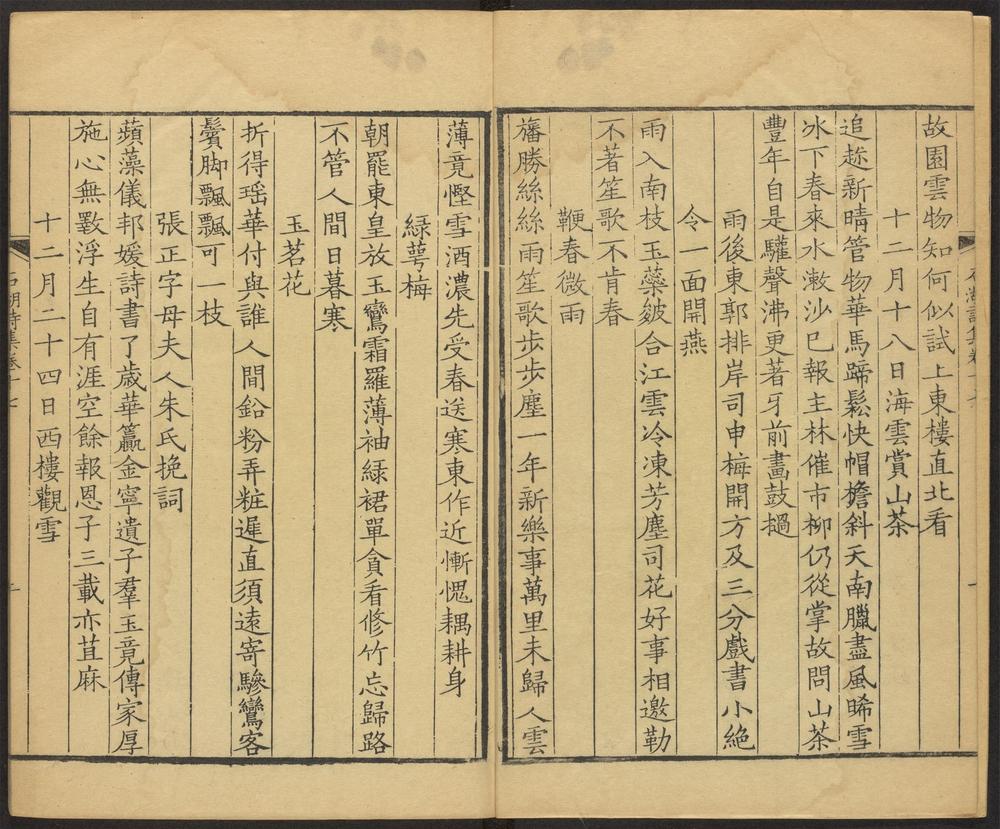 故園雲物知何似試上東樓直北看
十二月十八日海雲賞山茶
追趂新晴管物華馬蹄鬆快帽檐斜天南臘盡風晞雪
冰下春來水潄沙巳報主林催市柳仍從掌故問山茶
豐年自是驩聲沸更著牙前畫鼓撾
雨後東郭排岸司申梅開方及三分戲書小絶
令一面開燕
雨入南枝玉蘂皴合江雲冷凍芳塵司花好事相邀勒
不著笙歌不肯春
鞭春微雨
旛勝絲絲雨笙歌步步塵一年新樂事萬里未歸人雲
石湖詩集卷十七
薄竟慳雪酒濃先受春送寒東作近慚愧耦耕身
緑萼梅
朝罷東皇放玉鸞霜羅薄袖緑裙單貪看修竹忘歸路
不管人間日暮寒
玉茗花
折得瑶華付與誰人間鉛粉弄粧遲直須遠寄驂鸞客
鬢脚飄飄可一枝
張正字母夫人朱氏挽詞
蘋藻儀邦媛詩書了歳華籯金寧遺子羣玉竟傳家厚
施心無斁浮生自有涯空餘報恩子三載亦苴麻
十二月二十四日西樓觀雪
石湖詩集卷十七